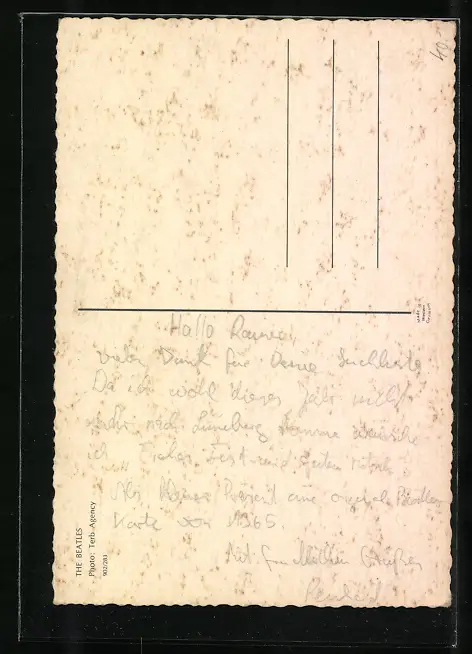 40
Hallo Rainer,
vielen Dank für Deine Suchliste
Da ich wohl dieses Jahr nicht
mehr nach Lüneburg komme wünsche
ich
Als kleines Präsent eine original Beatles
Karte von 1965
Mit freundlichen Grüßen
THE BEATLES
Photo: Terb-Agency
902/283